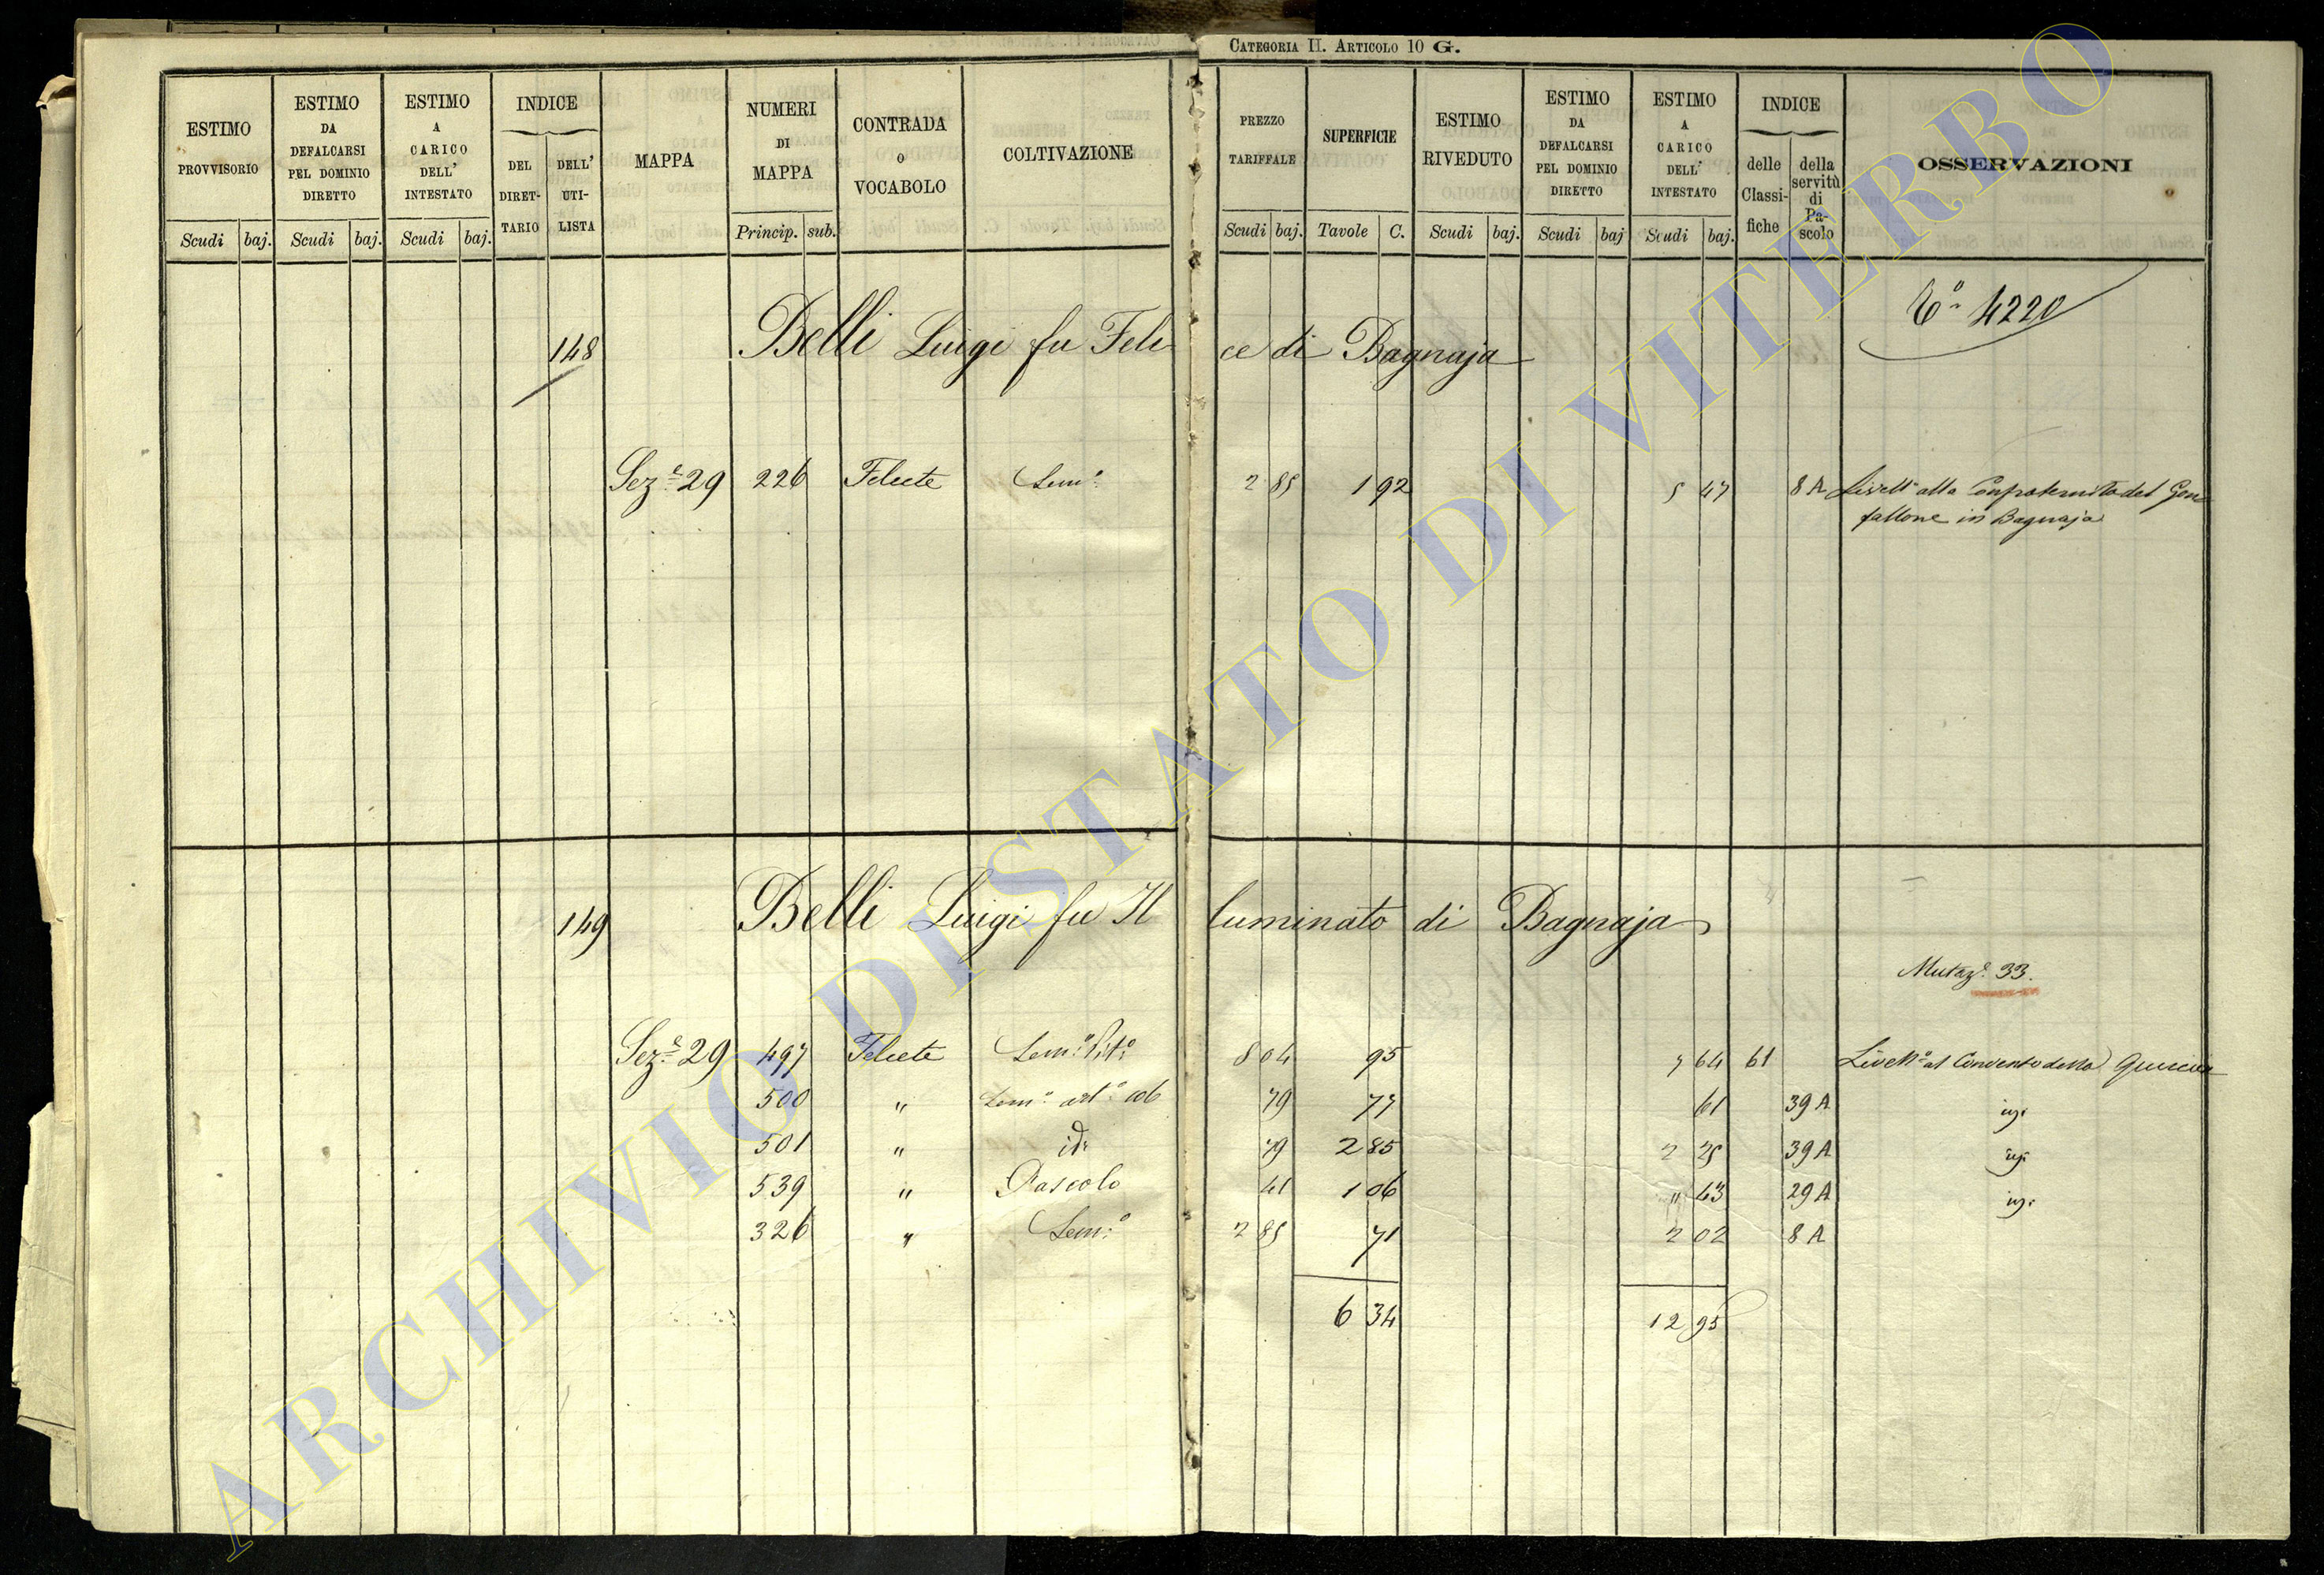 CATEGORIA II. ARTICOLO 10 G.
ESTIMO PROVVISORIO
ESTIMO DA DEFALCARSI PEL DOMINIO DIRETTO
ESTIMO A CARICO DELL' INTESTATO
INDICE
DEL DIRET- TARIO
DELL' UTI- LISTA
MAPPA
NUMERI DI MAPPA
CONTRADA O VOCABOLO
COLTIVAZIONE
PREZZO TARIFFALE
SUPERFICIE
ESTIMO RIVEDUTO
ESTIMO DA DEFALCARSI PEL DOMINIO DIRETTO
ESTIMO A CARICO DELL' INTESTATO
INDICE
delle Classi- fiche
della servitù di Pa- scolo
OSSERVAZIONI
Scudi baj. Scudi baj. Scudi baj. Princip. sub.
Scudi baj. Tavole C. Scudi baj. Scudi baj Scudi baj.
4220
148 Belli Luigi fu Felice di Bagnaja
Sez.e 29 226 Felcete Sem.o 2 85 1 92 5 47 8 A Livell.o alla Confraternita del Gon
fallone in Bagnaja
149 Belli Luigi fu Illuminato di Bagnaja
Mutaz.e 33.
Sez.e 29 497 Felcete Sem.o Vit.o 8 04 95 7 64 61 Livell.o al Convento della Quercia
500 " Sem.o 79 77 61 39 A
501 " id. 79 2 85 2 25 39 A
539 " Pascolo 41 1 06 " 43 29 A
326 " Sem.o 2 85 71 2 02 8 A
6 34 12 95
ARCHIVIO DI STATO DI VITERBO